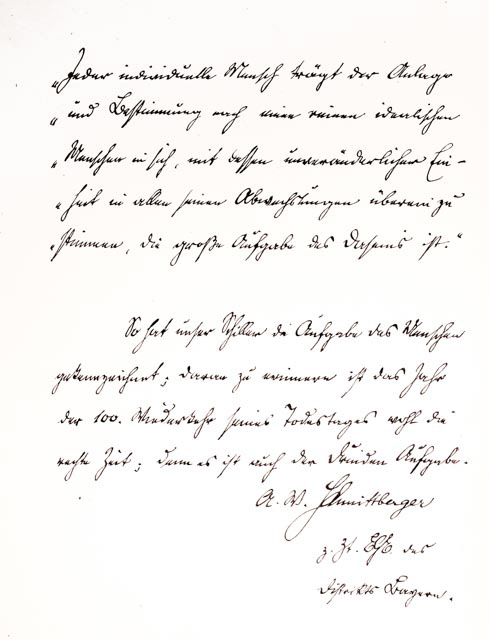 „Jeder individuelle Mensch trägt der Anlage
„und Bestimmung nach einen reinen idealischen
„Menschen in sich, mit dessen unveränderlicher Ein-
„heit in allen seinen Abwechslungen übereinzu
„stimmen, die große Aufgabe des Daseins ist.“
So hat unser Schiller die Aufgabe des Menschen
gekennzeichnet; daran zu erinnern ist das Jahr
der 100. Wiederkehr seines Todestages wohl die
rechte Zeit; denn es ist auch der Druiden Aufgabe.
A. W. Schmittberger
z. Zt. des
Distrikts Bayern.